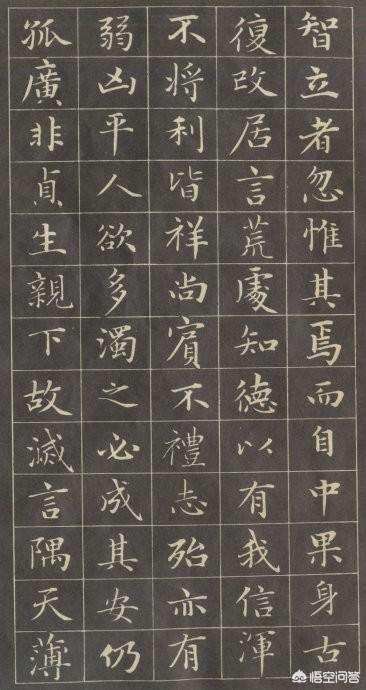 智立者忽惟其焉而自中果身古
復改居言荒處知德以有我信渾
不將利皆祥尚賓不禮志殆亦有
弱凶平人欲多濁之必成其安仍
孤廣非貞生親下故滅言隅天薄
悟空问答